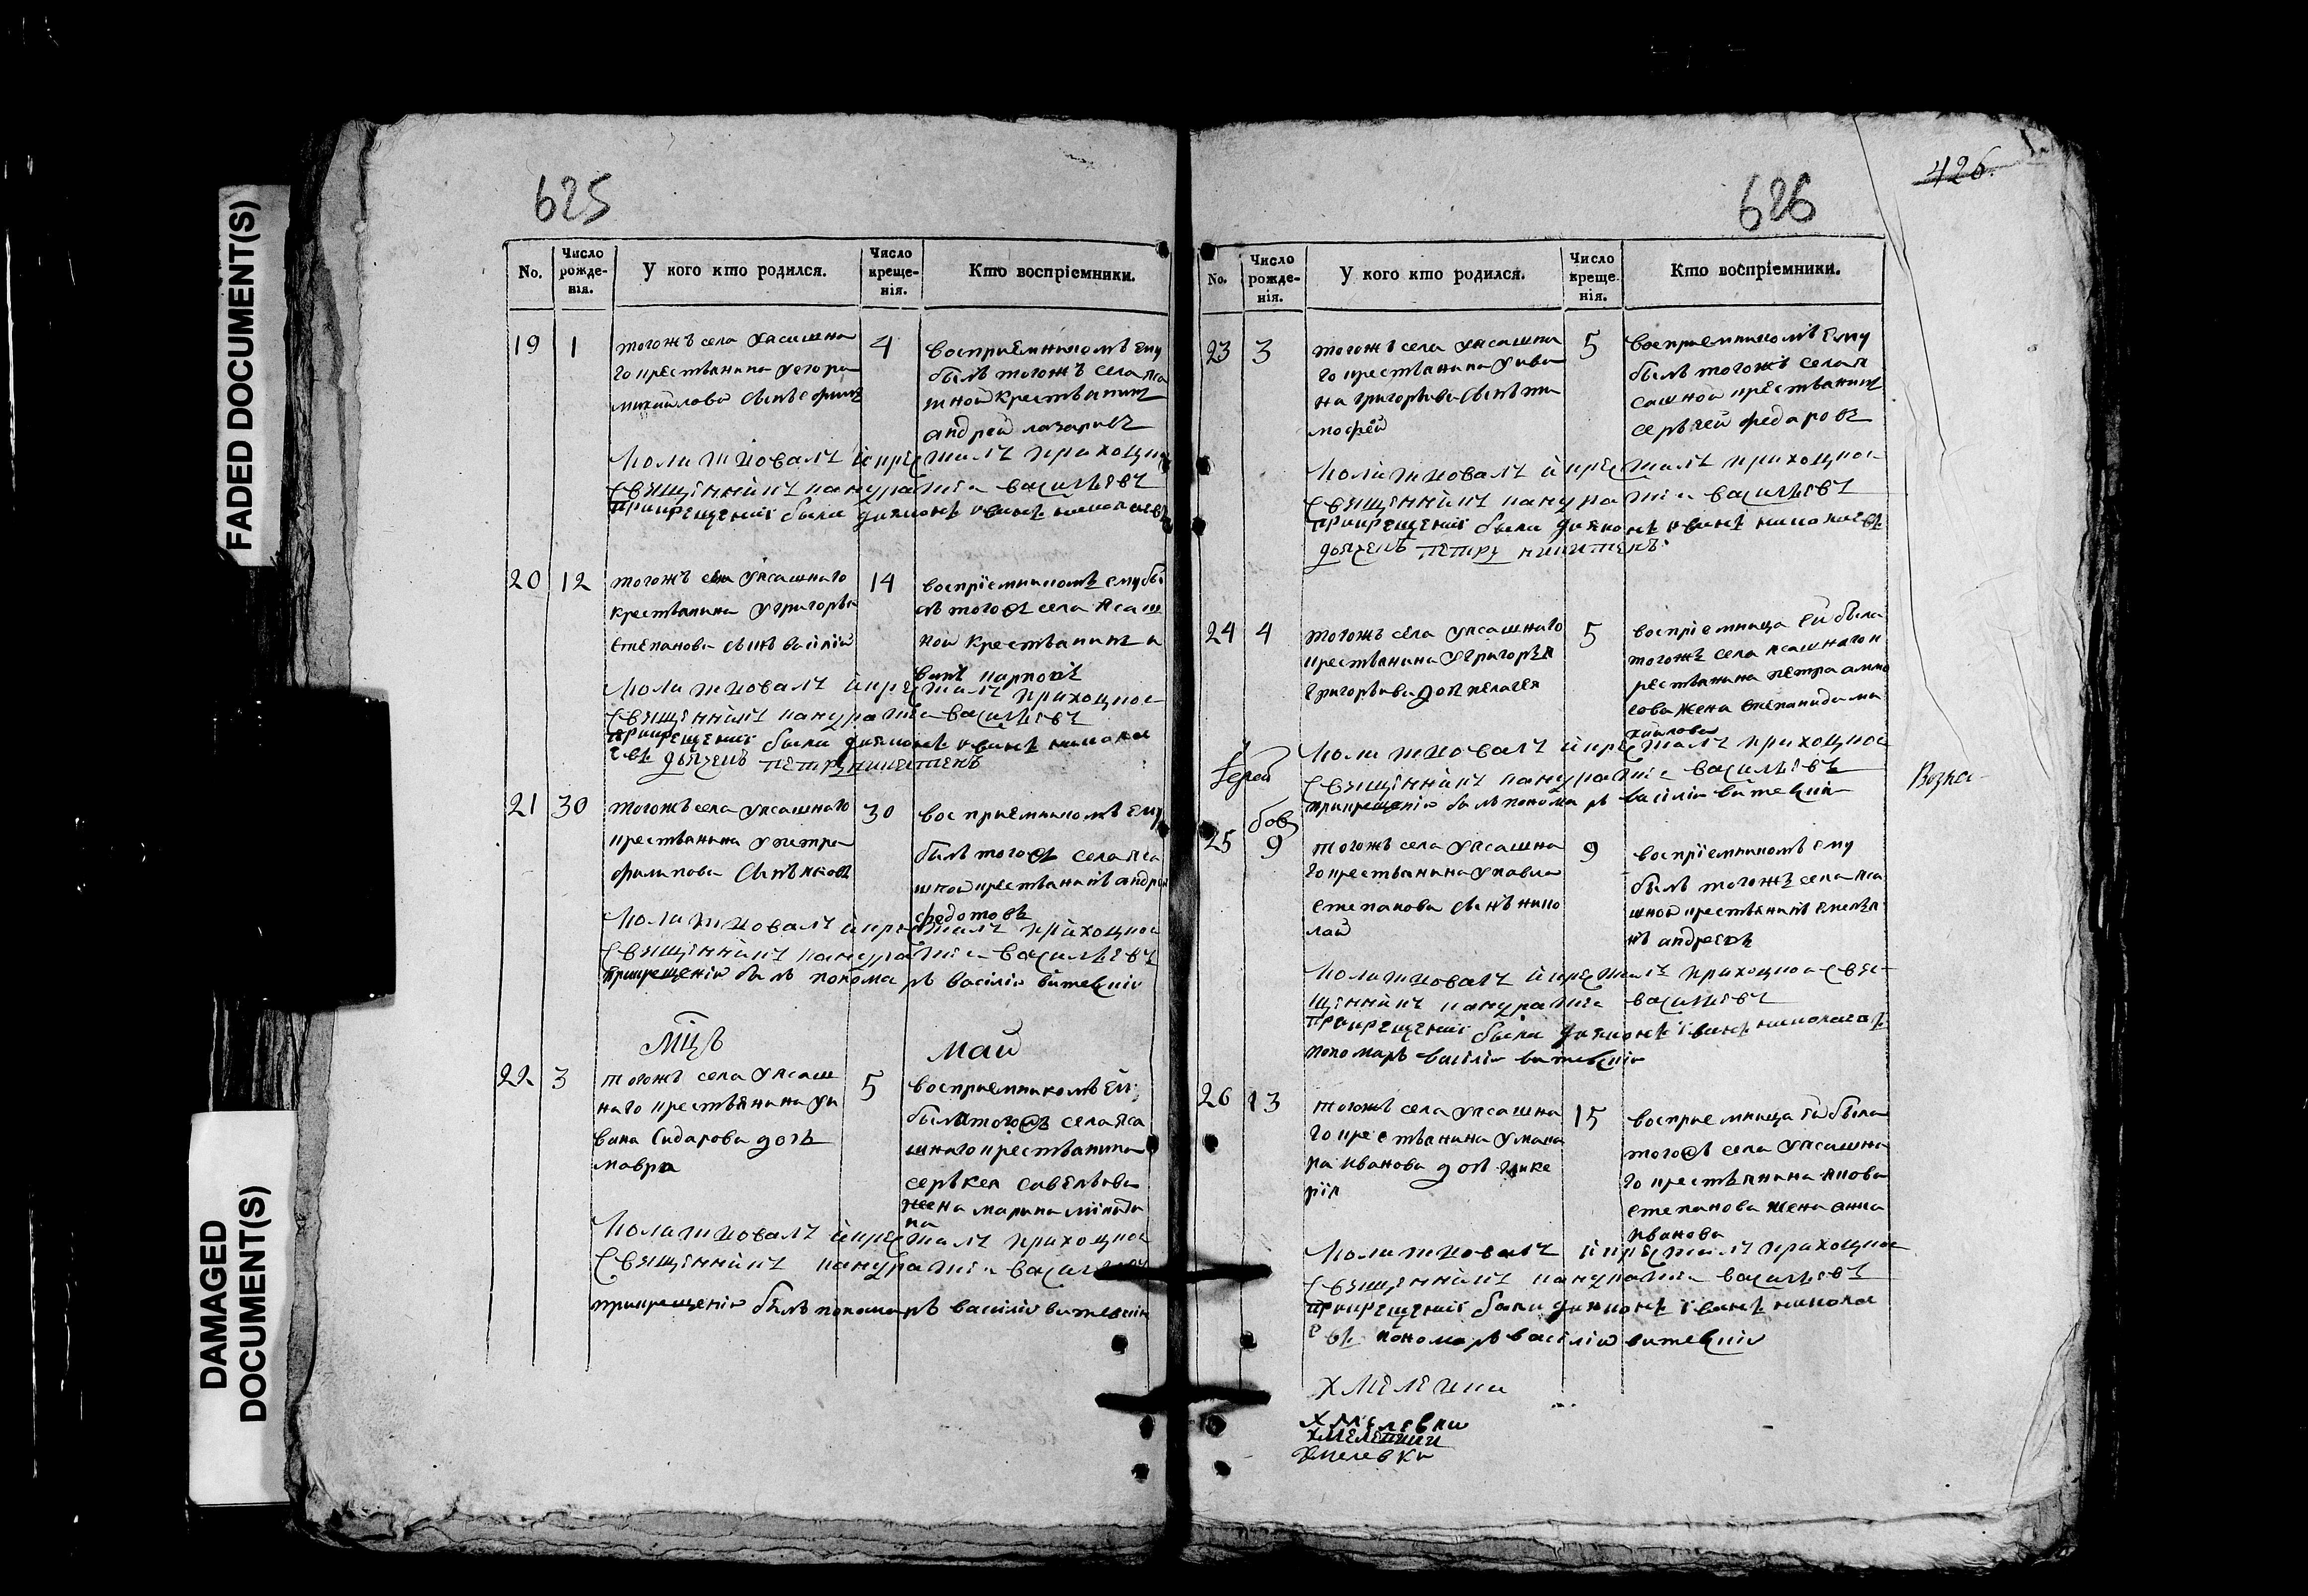 FADED DOCUMENT(S)
DAMAGED
DOCUMENT(S)
625
No.
Число
рожде-
нія.
У кого кто родился.
Число
креще-
нія.
Кто воспріемники.
19
1
тогожъ села уясашна
го крестьянина уегора
михайлова сынъ ефимъ
4
восприемникомъ ему
былъ тогожъ села яса
шной крестьянинъ
андрей лазаревъ
молитвовалъ и крестилъ приходцкое
священникъ панкратіе васильевъ
прикрещеніи были дияконъ иванъ николаевъ
20
12
тогожъ села уясашнаго
крестьянина угригорья
степанова сынъ василий
14
восприемникомъ ему бы
лъ тогожъ села ясаш
ной крестьянинъ и
ванъ карповъ
молитвовалъ и крестилъ приходцкое
священникъ панкратіе васильевъ
прикрещеніи были дияконъ иванъ никола
евъ дьячекъ петръ никитенъ
21
30
тогожъ села уясашнаго
крестьянина упетра
филипова сынъ яковъ
30
восприемникомъ ему
былъ тогожъ села яса
шной крестьянинъ андрей
федотовъ
молитвовалъ и крестилъ приходцкое
священникъ панкратіе васильевъ
прикрещеніи былъ пономарь василіи витевскіи
мцъ май
22
3
тогожъ села уясаш
наго крестьянина уи
вана сидарова дочь
мавра
5
восприемникомъ ей
былъ тогожъ села яса
шнаго крестьянина
серькея савельева
жена марина
молитвовалъ и крестилъ приходцкое
священникъ панкратіе васильевъ
прикрещеніи былъ пономарь василіи витевскіи
626
426.
No.
Число
рожде-
нія.
У кого кто родился.
Число
креще-
нія.
Кто воспріемники.
23
3
тогожъ села уясашна
го крестьянина уива
на григорьева сынъ ти
мофей
5
восприемникомъ ему
былъ тогожъ села я
сашной крестьянинъ
серьгей федаровъ
молитвовалъ и крестилъ приходцкое
священникъ панкратіе васильевъ
прикрещеніи были дияконъ иванъ николаевъ
дьячекъ петръ никитенъ
24
4
тогожъ села уясашнаго
крестьянина угригорья
григорьева дочь пелагея
5
восприемница ей была
тогожъ села ясашнаго к
рестьянина петра
жена степанида ми
хайлова
молитвовалъ и крестилъ приходцкое
священникъ панкратіе васильевъ
прикрещеніи былъ пономарь василіи витевскіи
Іерей
25
9
тогожъ села уясашна
го крестьянина упавла
степанова сынъ нико
лай
9
восприемникомъ ему
былъ тогожъ села яса
шной крестьянинъ емелья
нъ андреевъ
молитвовалъ и крестилъ приходцкое свя
щенникъ панкратіе васильевъ
прикрещеніи были дияконъ іванъ николаевъ
пономарь василіи витевскіи
26
13
тогожъ села уясашна
го крестьянина умака
ра иванова дочь глике
рія
15
восприемница ей была
тогожъ села уясашна
го крестьянина якова
степанова жена анна
иванова
молитвовалъ и крестилъ приходцкое
священникъ панкратіе васильевъ
прикрещеніи были дияконъ іванъ никола
евъ пономарь василіи витевскіи
хмелевки
хмелевки